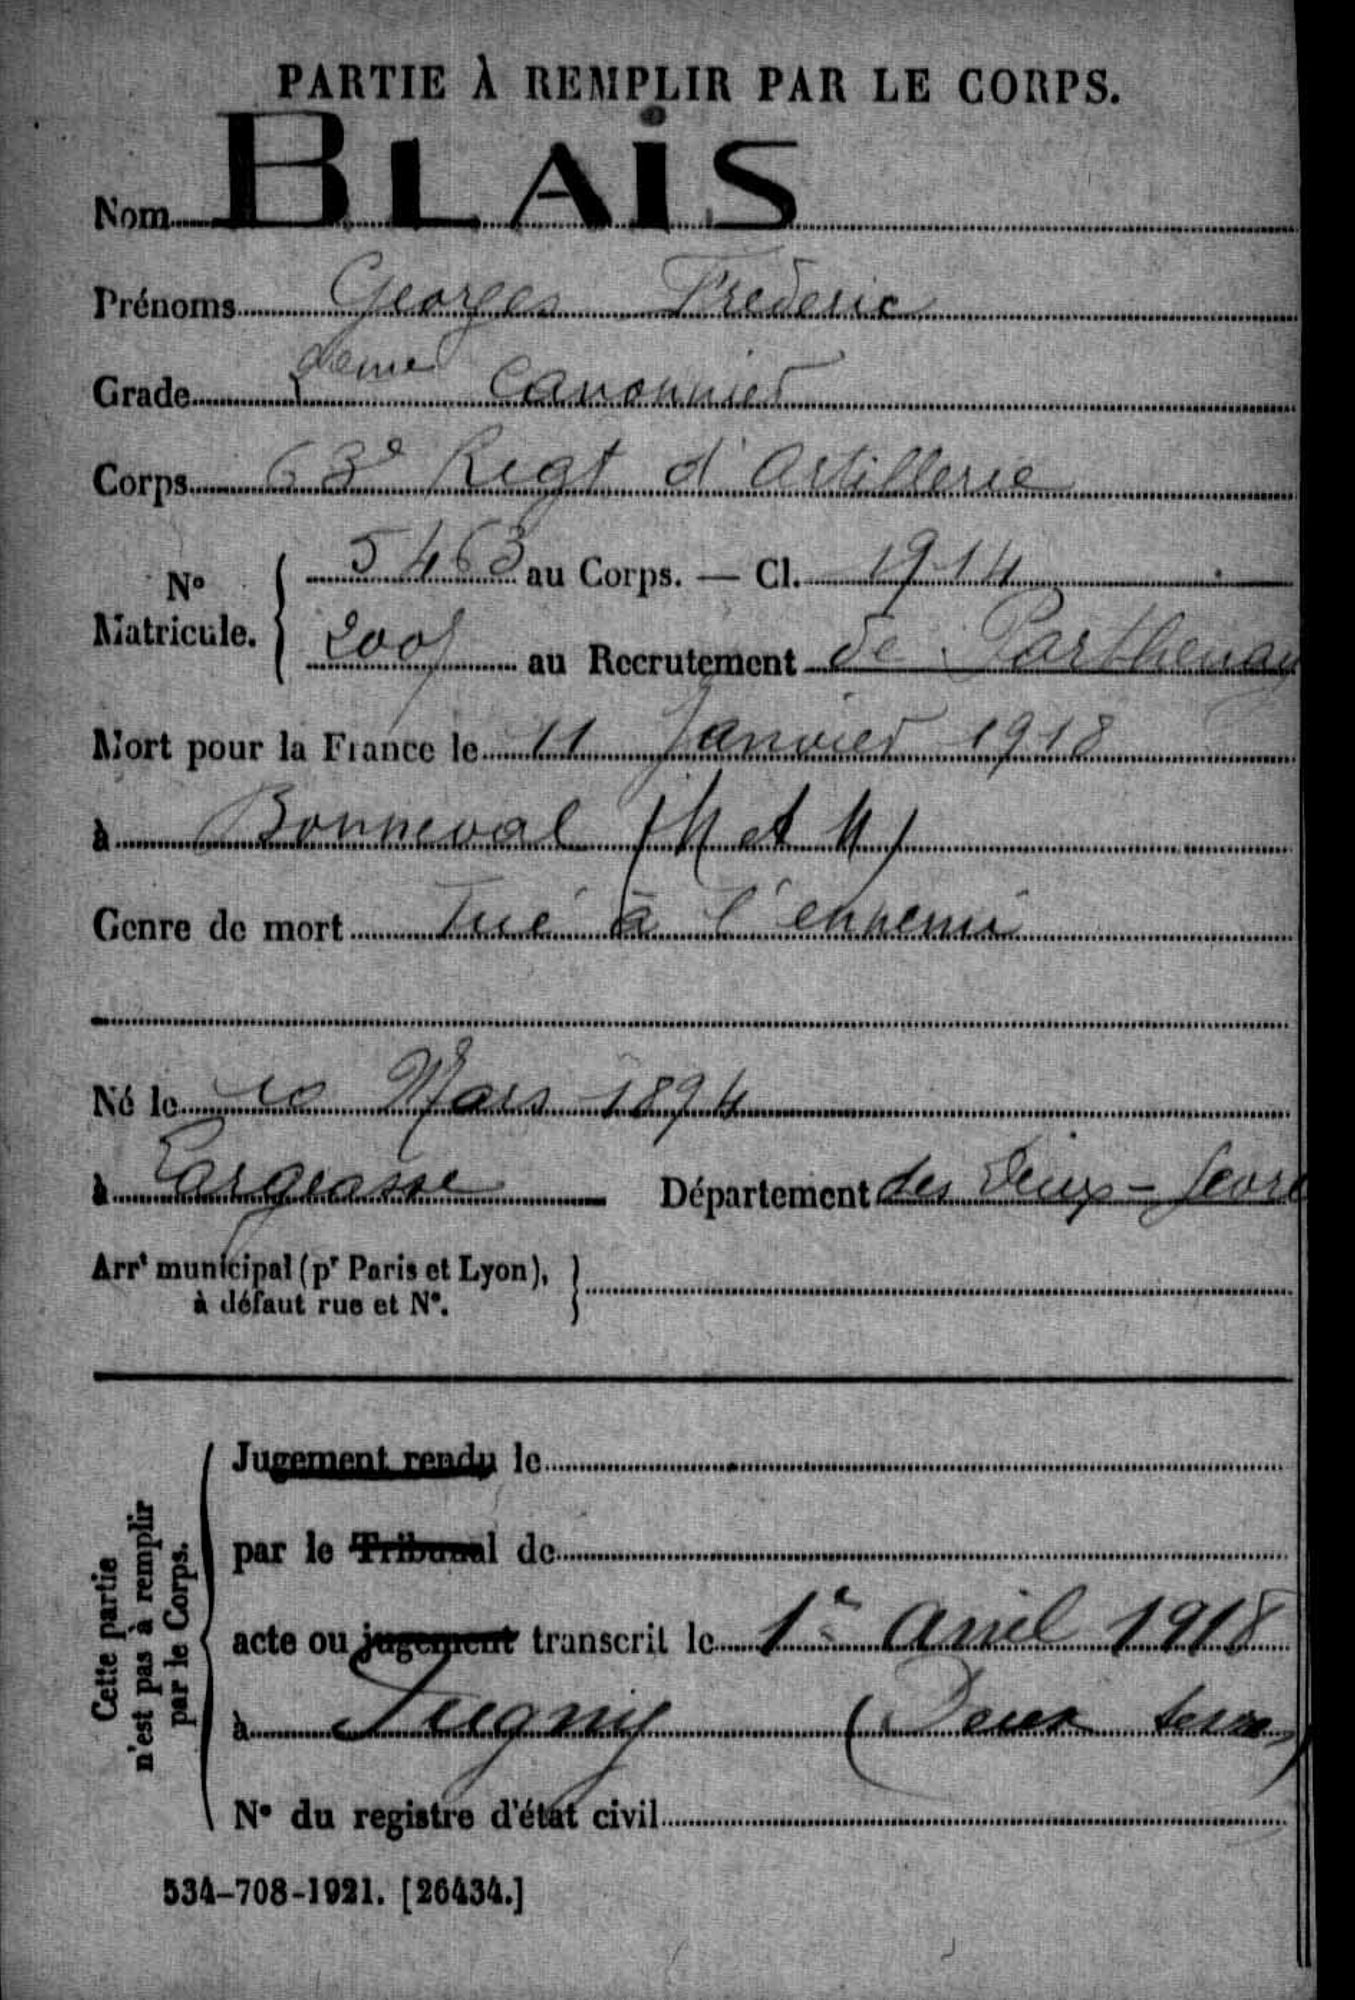 PARTIE À REMPLIR PAR LE CORPS.
Nom BLAiS
Prénoms Georges Frederic
Grade 2eme Canonnier
Corps 63e Regt d'Artillerie
No Matricule. { 5463 au Corps. — Cl. 1914
au Recrutement de Parthenay
Mort pour la France le 11 Janvier 1918
à Bonneval (M et M)
Genre de mort Tué à l'ennemi
Né le 10 Mars 1894
à Largeasse Département des Deux-Sevre
Arrt municipal (pr Paris et Lyon), }
à défaut rue et No.
Cette partie
n'est pas à remplir
par le Corps.
Jugement rendu le
par le Tribunal de
acte ou jugement transcrit le 1er Avril 1918
à (Deux Sevres)
No du registre d'état civil
534-708-1921. [26434.]